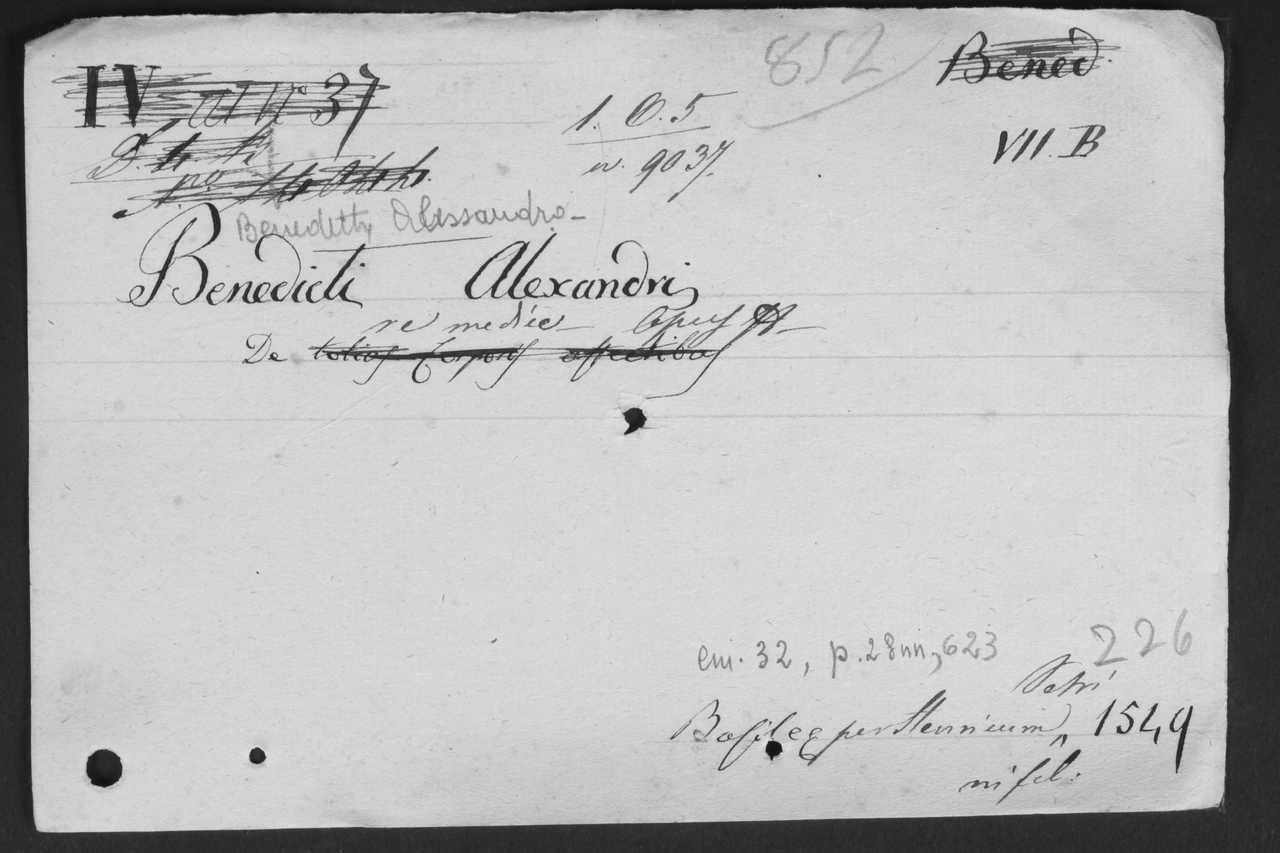 852
Bened
IV 37
1. O. 5
VII. B
n. 9037.
Benedetti Alessandro
Benedicti Alexandri
re medica Opus
De totius corporis affectibus
cm. 32, p. 28nn, 623
226
Petri
Basileę per Henricum 1549
in fol.